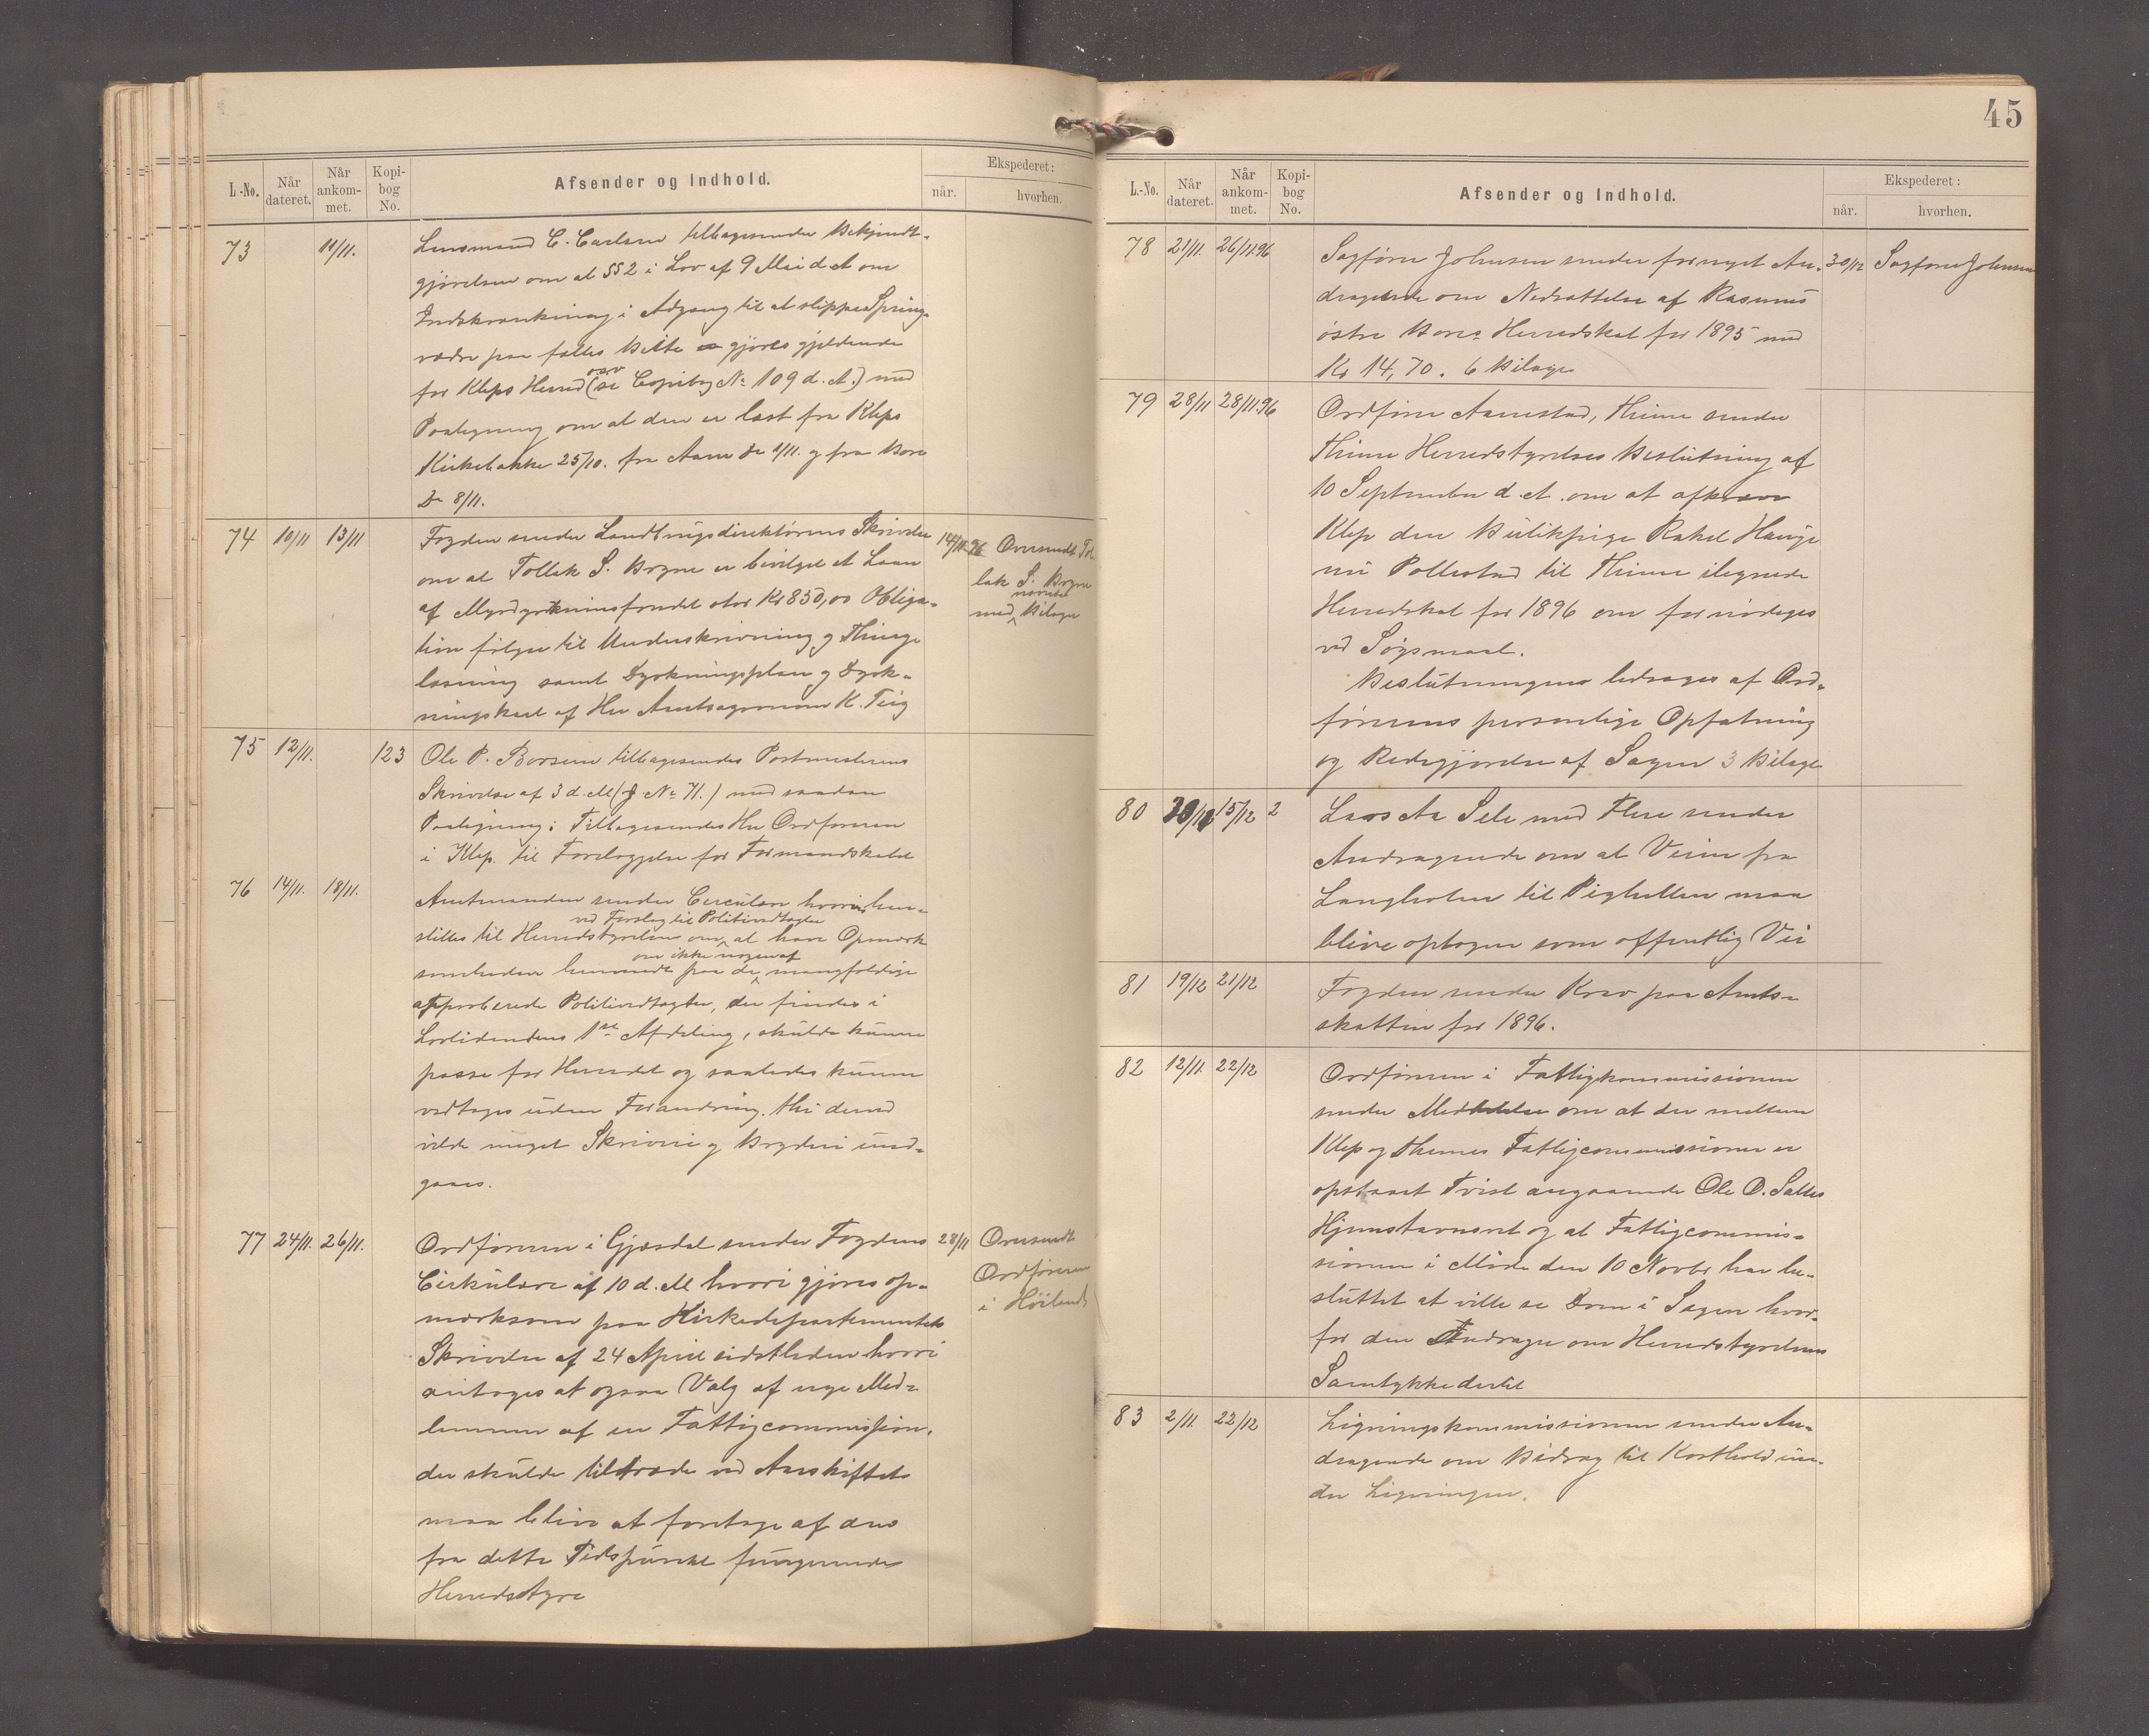 45
L.-No. Når dateret. Når ankommet. Kopibog No. Afsender og Indhold. Ekspederet: når. hvorhen.
73 11/11. Lensmand C. Carlsen tilbagesender Bekjendt-
gjørelsen om at §§ 2 i Lov af 9 Mai d. A om
Indskrænkning i Adgang til at slippe Spring-
vædre paa fælles Beite gjøres gjældende
for Kleps Herred osv (se Copibog No 109 d. A.) med
Paategning om at den er læst fra Kleps
Kirkebakke 25/10. fra Aarre Do 1/11. og fra Bore
Do 8/11.
74 10/11 13/11 Fogden sender Landbrugsdirektørens Skrivelse 14/11 96 Oversendt Tol-
om at Tollak S. Bryne er bevilget et Laan lak S. Bryne
af Myrdyrkningsfondet stor Kr 850,00 Obliga- med nævnte Bilage
tion følger til Underskrivning og Thing-
læsning samt Dyrkningsplan og Dyrk-
ningskart af Hr Amtsagronom K. Teig
75 12/11. 123 Ole P. Borsem tilbagesendes Postmesterens
Skrivelse af 3 d. M (J. No 71.) med saadan
Paategning: Tilbagesendes Hr Ordføreren
i Klep. til Forelæggelse for Formandskabet
76 14/11. 18/11. Amtmanden sender Circulære hvori hen-
stilles til Herredstyrelsen om ved Forslag til Politivedtægter at have Opmærk-
somheden henvendt paa om ikke nogen af de mangfoldige
approberede Politivedtægter, der findes i
Lovtidendens 1ste Afdeling, skulde kunne
passe for Herredet og saaledes kunne
vedtages uden Forandring. thi derved
vilde meget Skriveri og Bryderi und-
gaaes.
77 24/11. 26/11. Ordføreren i Gjesdal sender Fogdens 28/11 Oversendt
Cirkulære af 10 d. M hvori gjøres op- Ordføreren
mærksom paa Kirkedepartementets i Høiland
Skrivelse af 24 April sidstleden hvori
antages at ogsaa Valg af nye Med-
lemmer af en Fattigcommission.
der skulde tiltræde ved Aarskiftet
maa blive at foretage af den
fra dette Tidspunkt fungerende
Herredsstyre
L.-No. Når dateret. Når ankommet. Kopibog No. Afsender og Indhold. Ekspederet: når. hvorhen.
78 21/11. 26/11.96 Sagfører Johnsen sender fornyet An- 30/12 Sagfører Johnsen
dragende om Nedsættelse af Rasmus
østre Bores Herredskat for 1895 med
Kr 14,70. 6 Bilage
79 28/11 28/11.96 Ordfører Aarrestad, Thime sender
Thime Herredstyrelses Beslutning af
10 September d. A. om at afkræve
Klep den Butikpige Rakel Hauge
nu Pollestad til Thime ilignede
Herredskat for 1896 om fornødiges
ved Søgsmaal.
Beslutningen ledsages af Ord-
førerens personlige Opfatning
og Redegjørelse af Sagen 3 Bilage
80 30/11 15/12 2 Lars Aa Sele med Flere sender
Andragende om at Veien fra
Langholen til Pighellen maa
blive optagen som offentlig Vei
81 19/12 21/12 Fogden sender Krav paa Amts-
skatten for 1896.
82 12/11. 22/12 Ordføreren i Fattigkommissionen
sender Meddelelse om at der mellem
Klep og Thimes Fattigcommissioner er
opstaaet Tvist angaaende Ole O. Saltes
Hjemstavnsret og at Fattigcommis-
sionen i Møde den 10 Novbr har be-
sluttet at ville se Dom i Sagen hvor-
for den Andrager om Herredstyrelsens
Samtykke dertil
83 2/11. 22/12 Ligningskommissionen sender An-
dragende om Bidrag til Kosthold un-
der Ligningen.